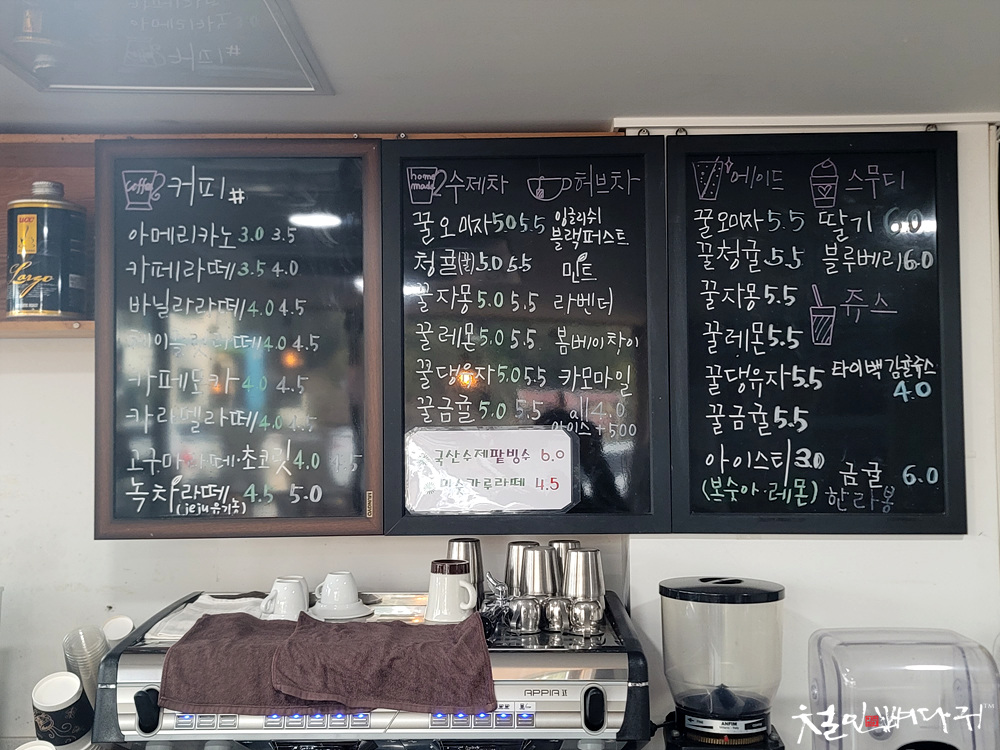 coffee 커피#
아메리카노 3.0 3.5
카페라떼 3.5 4.0
바닐라라떼 4.0 4.5
헤이즐넛라떼 4.0 4.5
카페모카 4.0 4.5
카라멜라떼 4.0 4.5
고구마라떼·초코릿 4.0 4.5
녹차라떼 4.5 5.0
(jeju유기농)
home made 수제차
꿀오미자 5.0 5.5
청귤(꿀) 5.0 5.5
꿀자몽 5.0 5.5
꿀레몬 5.0 5.5
꿀댕유자 5.0 5.5
꿀금귤 5.0 5.5
허브차
잉글리쉬
블랙퍼스트
민트
라벤더
봄베이챠이
카모마일
all 4.0
아이스 +500
국산수제팥빙수 6.0
미숫가루라떼 4.5
에이드
꿀오미자 5.5
꿀청귤 5.5
꿀자몽 5.5
꿀레몬 5.5
꿀댕유자 5.5
꿀금귤 5.5
아이스티 3.0
(복숭아·레몬)
스무디
딸기 6.0
블루베리 6.0
쥬스
타이벡감귤쥬스
4.0
금귤 6.0
한라봉
UCC
Largo
APPIA II
ANFIM